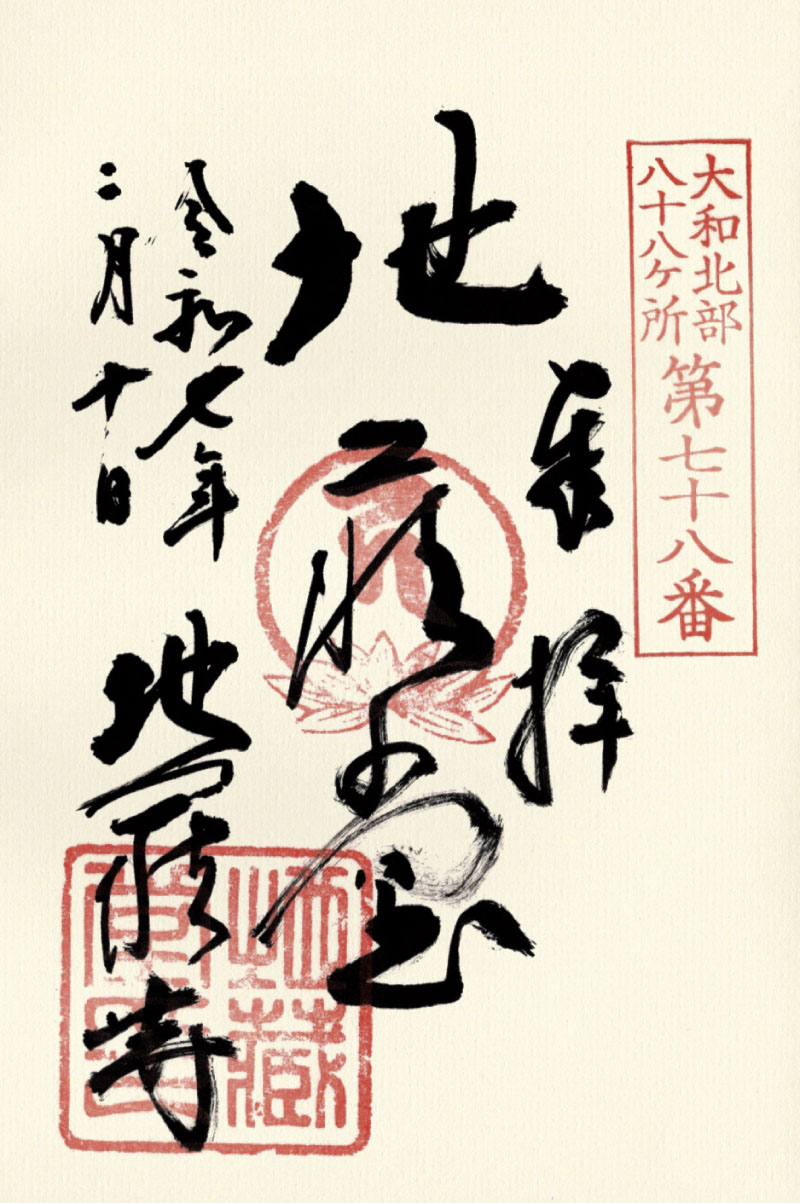 大和北部
八十八ケ所
第七十八番
奉拝
地蔵堂
令和七年
二月十日
地蔵寺
地蔵